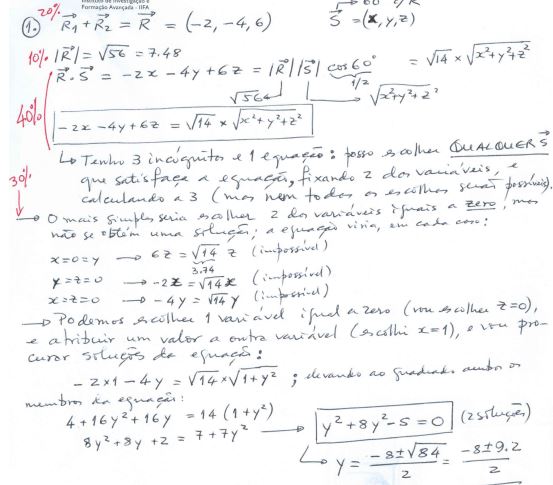 Instituto de Investigação e
Formação Avançada - IIFA
20%
1. R₁ + R₂ = R = (-2, -4, 6)    S = (x, y, z)
10% |R| = √56 = 7.48
40% R . S = -2x - 4y + 6z = |R||S| cos60° = √14 × √x²+y²+z²
√56    1/2    √x²+y²+z²
-2x - 4y + 6z = √14 × √x²+y²+z²
↳ Tenho 3 incógnitas e 1 equação: posso escolher QUALQUER S
30% que satisfaça a equação, fixando 2 das variáveis, e
calculando a 3 (mas nem todas as escolhas serão possíveis).
→ O mais simples seria escolher 2 das variáveis iguais a zero, mas
não se obtém uma solução; a equação viria, em cada caso:
x=0=y → 6z = √14 z (impossível)
3.74
y=z=0 → -2x = √14 x (impossível)
x=z=0 → -4y = √14 y (impossível)
→ Podemos escolher 1 variável igual a zero (vou escolher z=0),
e atribuir um valor a outra variável (escolhi x=1), e vou pro-
curar soluções da equação:
-2×1 - 4y = √14 × √1+y² ; elevando ao quadrado ambos os
membros da equação:
4 + 16y² + 16y = 14(1+y²)
8y² + 8y + 2 = 7 + 7y² → y² + 8y - 5 = 0 (2 soluções)
↳ y = (-8 ± √84)/2 = (-8 ± 9.2)/2